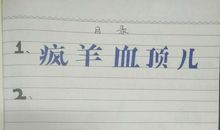 目录
1、疯羊血顶儿
2、